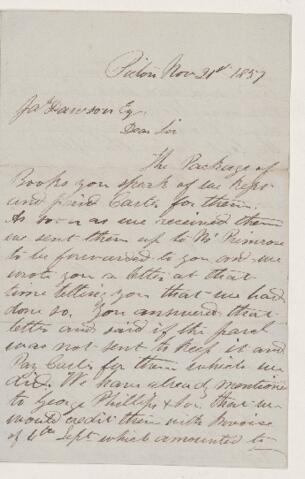 Pictou Nov 21st 1857
Jas Dawson Esq
Dear Sir
The Package of
Books you speak of we kept
and paid Carter for them.
As soon as we received them
we sent them up to Mr Primrose
to be forwarded to you and we
wrote you a letter at that
time telling you that we had
done so. You answered that
letter and said if the parcel
was not sent to keep it and
Pay Carter for them which we
did. We have already mentioned
to George Phillips & Son that we
would credit them with Invoice
of 4th Sept which amounted to